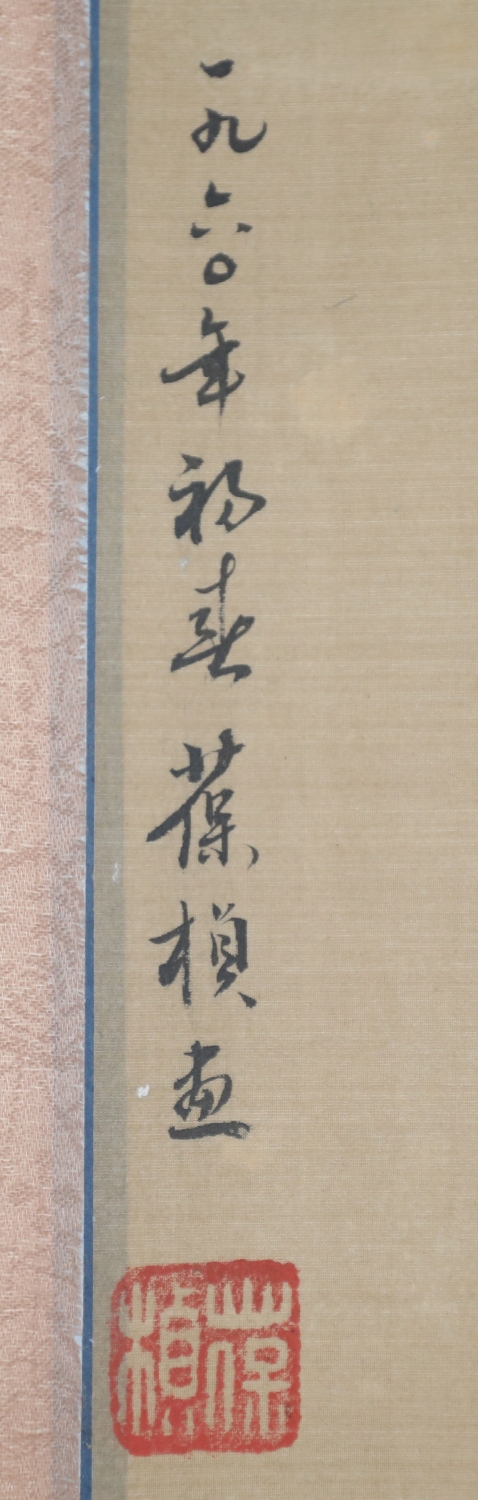 一九六〇年初春葆楨畫
葆楨